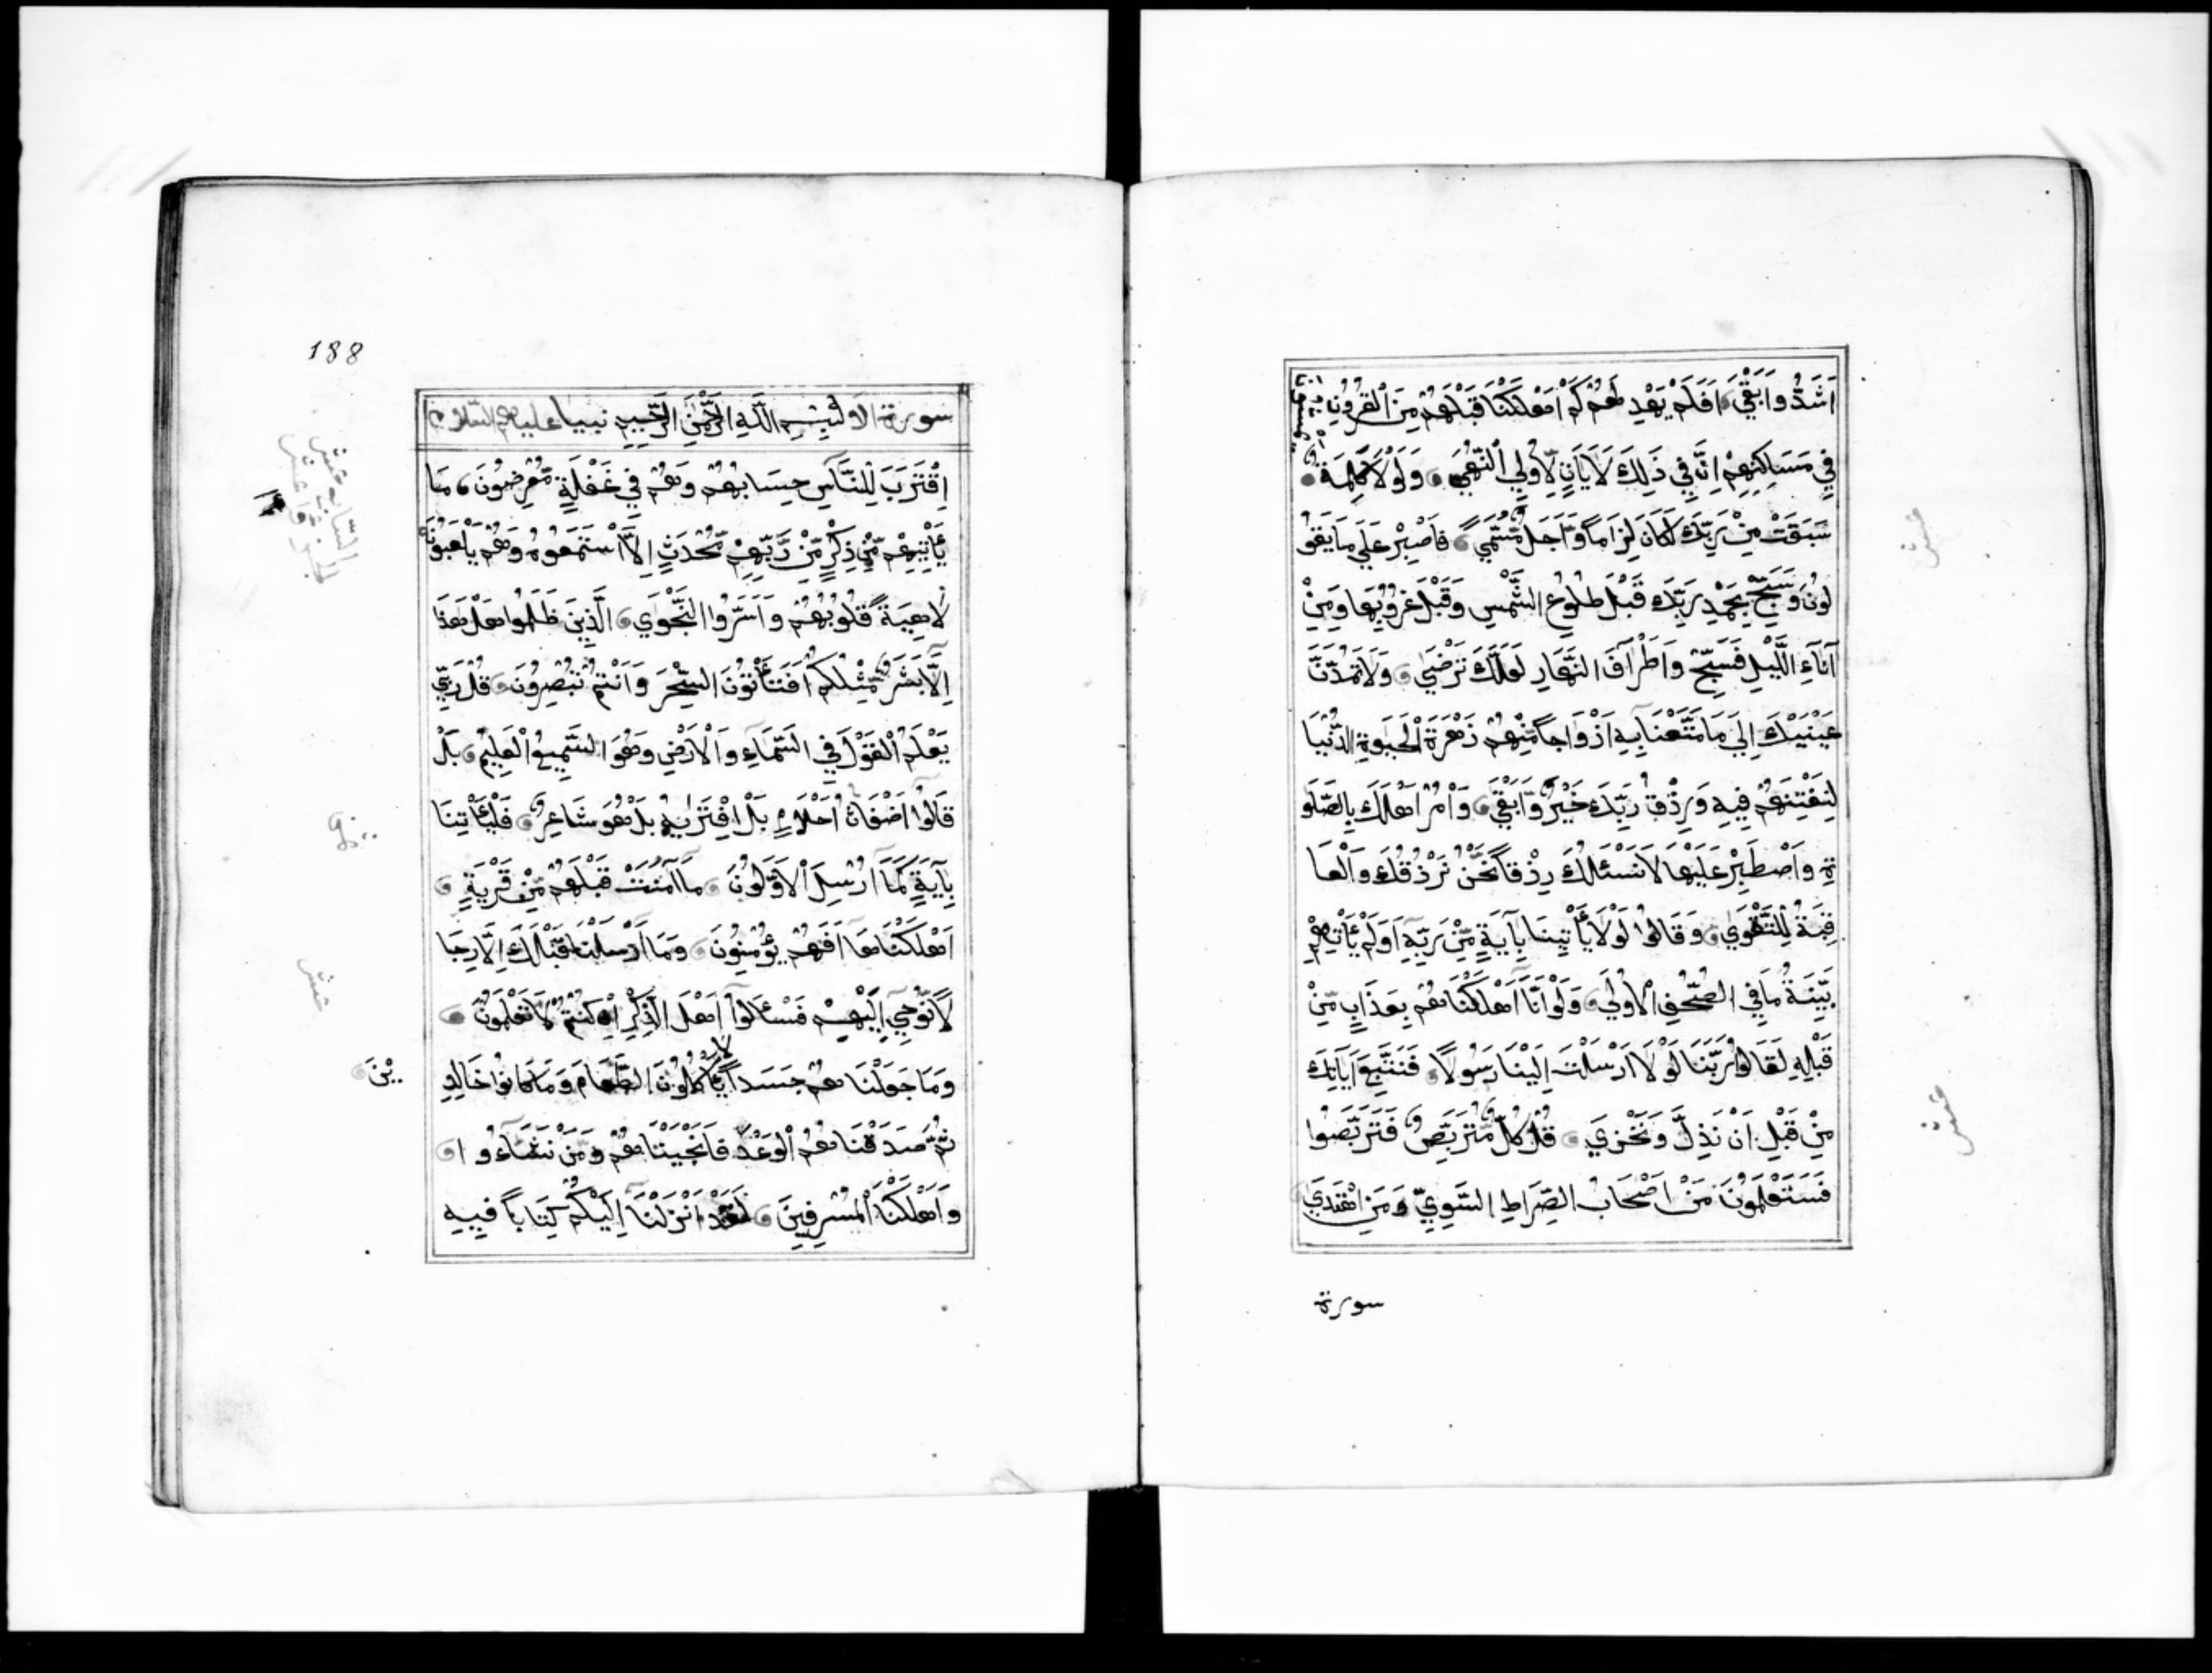 اَشَدُّ وَاَبْقٰي اَفَلَمْ يَهْدِ لَهُمْ كَمْ اَهْلَكْنَا قَبْلَهُمْ مِنَ الْقُرُونِ يمشون
فِي مَسَاكِنِهِمْ اِنَّ فِي ذَلِكَ لَآيَاتٍ لِاُولِي النُّهٰي وَلَوْلَا كَلِمَةٌ
سَبَقَتْ مِنْ رَبِّكَ لَكَانَ لِزَامًا وَّاَجَلٌ مُّسَمًّي فَاصْبِرْ عَلَي مَا يَقُو
لُونَ وَسَبِّحْ بِحَمْدِ رَبِّكَ قَبْلَ طُلُوعِ الشَّمْسِ وَقَبْلَ غُرُوبِهَا وَمِنْ
آنَاءِ اللَّيْلِ فَسَبِّحْ وَاَطْرَافَ النَّهَارِ لَعَلَّكَ تَرْضَي وَلَا تَمُدَّنَّ
عَيْنَيْكَ اِلَي مَا مَتَّعْنَا بِهِ اَزْوَاجًا مِّنْهُمْ زَهْرَةَ الْحَيٰوةِ الدُّنْيَا
لِنَفْتِنَهُمْ فِيهِ وَرِزْقُ رَبِّكَ خَيْرٌ وَّاَبْقٰي وَاْمُرْ اَهْلَكَ بِالصَّلٰو
ةِ وَاصْطَبِرْ عَلَيْهَا لَا نَسْئَلُكَ رِزْقًا نَحْنُ نَرْزُقُكَ وَالْعَا
قِبَةُ لِلتَّقْوَي وَقَالُوا لَوْلَا يَأْتِينَا بِآيَةٍ مِّنْ رَبِّهِ اَوَلَمْ يَأْتِهِمْ
بَيِّنَةُ مَا فِي الصُّحُفِ الْاُولَي وَلَوْ اَنَّا اَهْلَكْنَاهُمْ بِعَذَابٍ مِّنْ
قَبْلِهِ لَقَالُوا رَبَّنَا لَوْلَا اَرْسَلْتَ اِلَيْنَا رَسُولًا فَنَتَّبِعَ آيَاتِكَ
مِنْ قَبْلِ اَنْ نَذِلَّ وَنَخْزَي قُلْ كُلٌّ مُّتَرَبِّصٌ فَتَرَبَّصُوا
فَسَتَعْلَمُونَ مَنْ اَصْحَابُ الصِّرَاطِ السَّوِيِّ وَمَنِ اهْتَدَي
سورة
عشر
عشر
188
سورة الانبيا عليهم السلام بِسْمِ اللَّهِ الرَّحْمٰنِ الرَّحِيمِ
اِقْتَرَبَ لِلنَّاسِ حِسَابُهُمْ وَهُمْ فِي غَفْلَةٍ مُّعْرِضُونَ مَا
يَأْتِيهِمْ مِّنْ ذِكْرٍ مِّنْ رَّبِّهِمْ مُّحْدَثٍ اِلَّا اسْتَمَعُوهُ وَهُمْ يَلْعَبُونَ
لَاهِيَةً قُلُوبُهُمْ وَاَسَرُّوا النَّجْوَي الَّذِينَ ظَلَمُوا هَلْ هَذَا
اِلَّا بَشَرٌ مِّثْلُكُمْ اَفَتَأْتُونَ السِّحْرَ وَاَنْتُمْ تُبْصِرُونَ قُلْ رَبِّي
يَعْلَمُ الْقَوْلَ فِي السَّمَاءِ وَالْاَرْضِ وَهُوَ السَّمِيعُ الْعَلِيمُ بَلْ
قَالُوا اَضْغَاثُ اَحْلَامٍ بَلِ افْتَرٰيهُ بَلْ هُوَ شَاعِرٌ فَلْيَأْتِنَا
بِآيَةٍ كَمَا اُرْسِلَ الْاَوَّلُونَ مَا آمَنَتْ قَبْلَهُمْ مِّنْ قَرْيَةٍ
اَهْلَكْنَاهَا اَفَهُمْ يُؤْمِنُونَ وَمَا اَرْسَلْنَا قَبْلَكَ اِلَّا رِجَا
لًا نُّوحِي اِلَيْهِمْ فَسْئَلُوا اَهْلَ الذِّكْرِ اِنْ كُنْتُمْ لَا تَعْلَمُونَ
وَمَا جَعَلْنَاهُمْ جَسَدًا لَا يَأْكُلُونَ الطَّعَامَ وَمَا كَانُوا خَالِدِ
يْنَ
ثُمَّ صَدَقْنَاهُمُ الْوَعْدَ فَاَنْجَيْنَاهُمْ وَمَنْ نَشَاءُ وا
وَاَهْلَكْنَا الْمُسْرِفِينَ لَقَدْ اَنْزَلْنَا اِلَيْكُمْ كِتَابًا فِيهِ
عشر